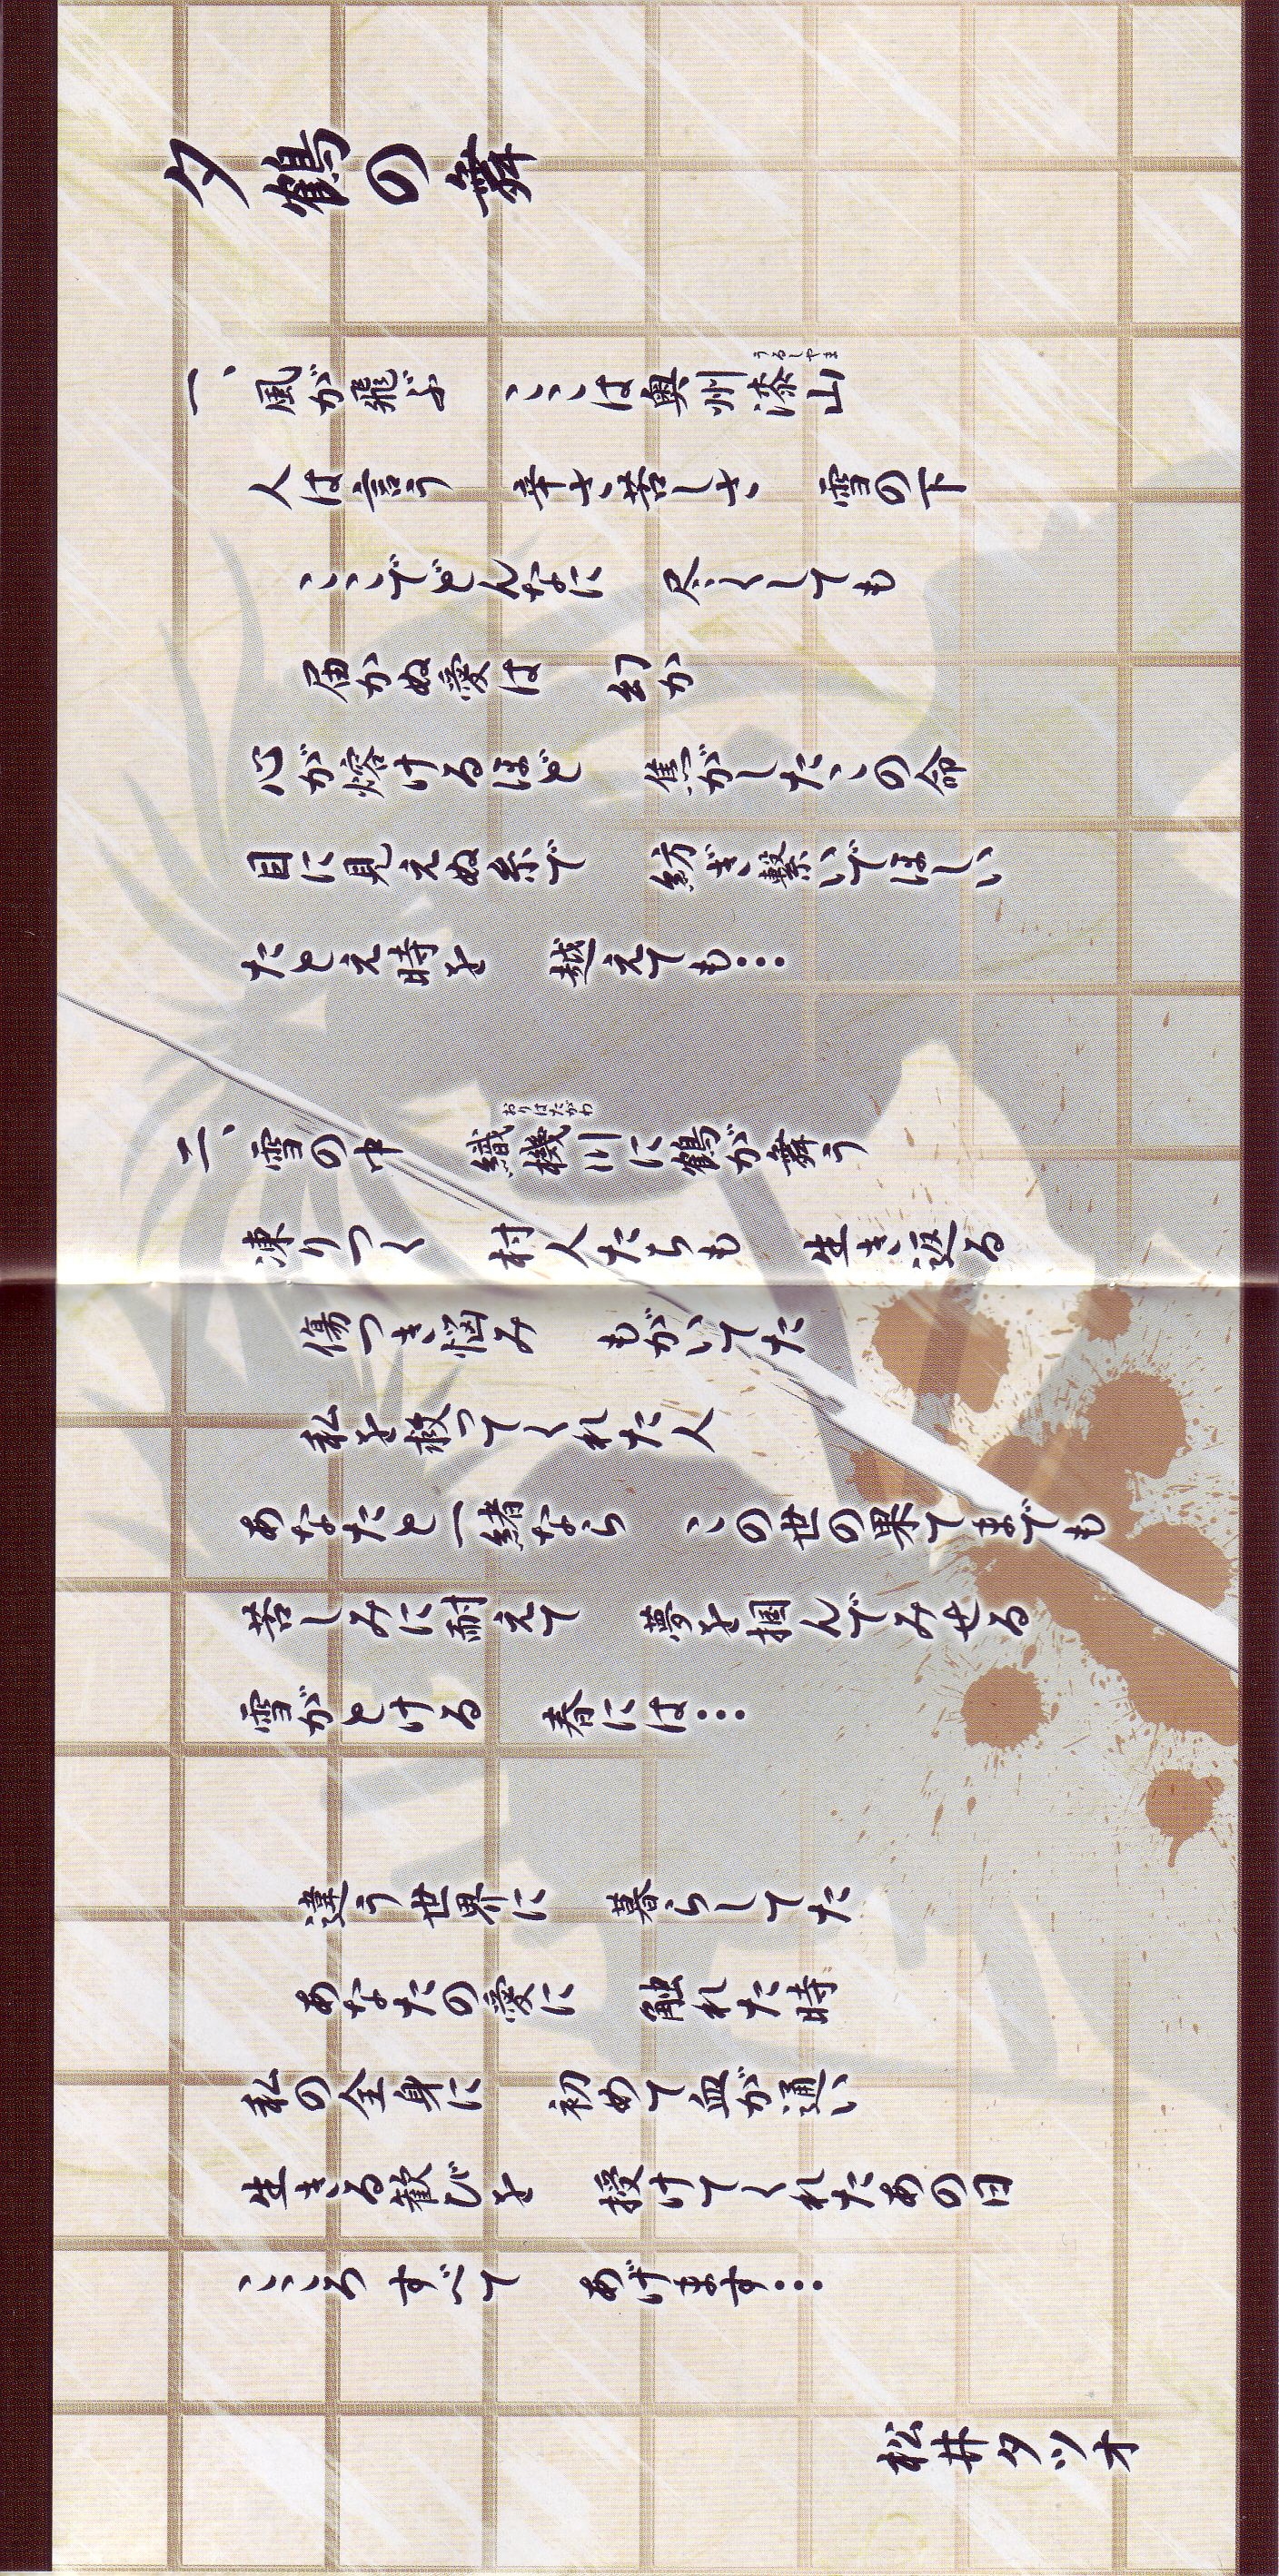 夕鶴の舞
一、風が飛ぶ　ここは奥州漆山
うるしやま
人は言う　辛さ苦しさ　雪の下
ここでどんなに　尽くしても
届かぬ愛は　幻か
心が熔けるほど　焦がしたこの命
目に見えぬ糸で　紡ぎ繋いでほしい
たとえ時を　越えても…
二、雪の中　織機川に鶴が舞う
おりはたがわ
凍りつく　村人たちも　生き返る
傷つき悩み　もがいてた
私を救ってくれた人
あなたと一緒なら　この世の果てまでも
苦しみに耐えて　夢を掴んでみせる
雪がとける　春には…
違う世界に　暮らしてた
あなたの愛に　触れた時
私の全身に　初めて血が通い
生きる歓びを　授けてくれたあの日
こころすべて　あげます…
松井タツオ